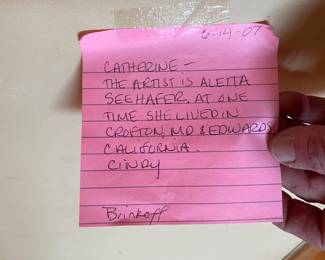 6-14-07
CATHERINE –
THE ARTIST IS ALETTA
SEEHAFER. AT ONE
TIME SHE LIVED IN
CROFTON, MD & EDWARDS
CALIFORNIA.
CINDY
Brinkoff